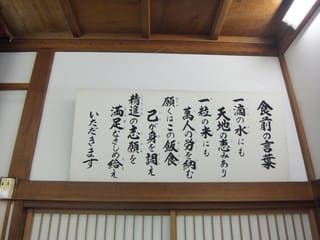 食前の言葉
一滴の水にも
天地の恵みあり
一粒の米にも
萬人の労を納む
願くはこの飯食
己が身を調え
精進の志願を
満足なさしめ給え
いただきます